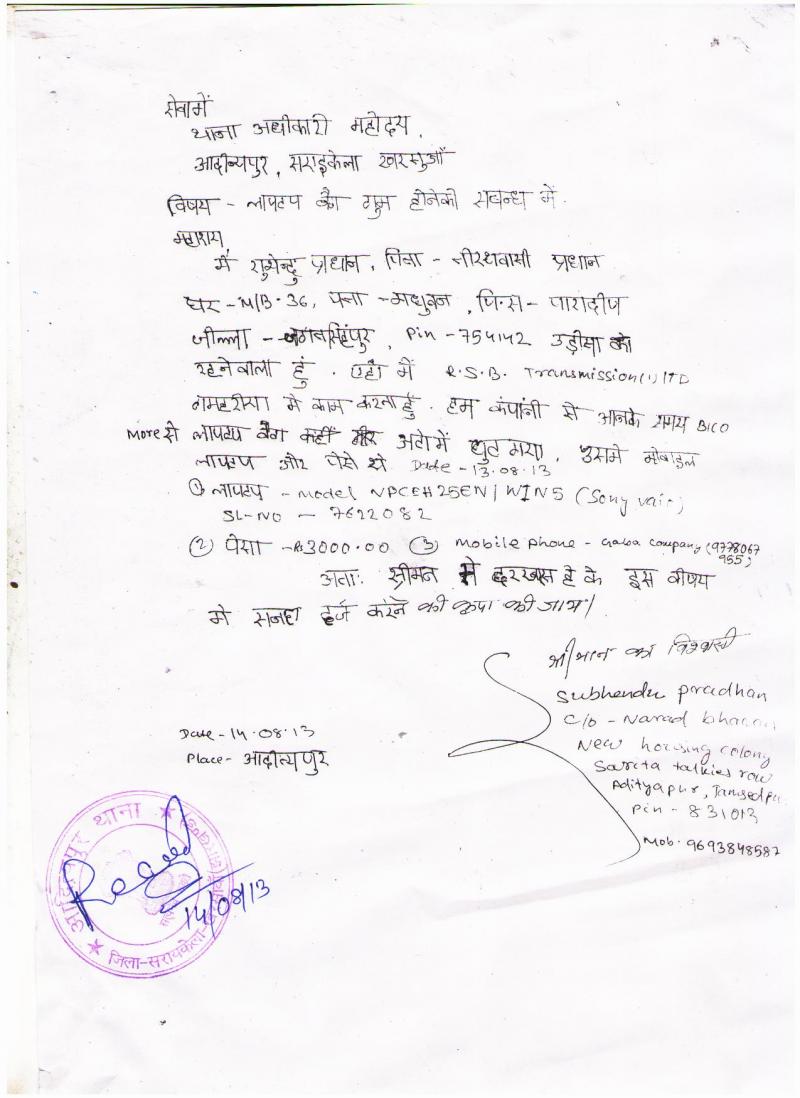 सेवामें
थाना अधीकारी महोदय,
आदीत्यपुर, सराइकेला खरसुआँ
विषय - लापटप बैग गुम होनेकी सबन्ध में.
महाशय,
मैं शुभेन्दु प्रधान, पिता - तीरथवासी प्रधान
घर - M/B-36, पता - मधुबन, पि.स - पारादीप
जील्ला - जगतसिंहपुर, Pin - 754142 उड़ीसा का
रहनेवाला हुं. एहाँ में R.S.B. Transmission(I) LTD
गमहरीया में काम करताहुँ. हम कंपांनी से आनके समय BICO
More से लापटप बैग कहीं अटोमें छुट गया, उसमे मोबाइल
लापटप और पैसे थे Date - 13.08.13
① लापटप - model NPCEH25EN/WINS (Sony vaio)
SL-NO - 7622082
② पैसा - Rs3000.00 ③ Mobile phone - company (9778067
955)
अतः श्रीमन से दरखास हे के इस वीषय
मे सनहा दर्ज करने की कृपा की जाय।
श्रीमान का विश्वासी
Subhendu pradhan
C/o - Narad bhawan
New housing colony
Sarita talkies row
Adityapur, Jamsedpur
Pin - 831013
Mob. 9693848587
Date - 14.08.13
Place - आदीत्यपुर
आदित्यपुर थाना
Reced
14/08/13
जिला-सरायकेला-